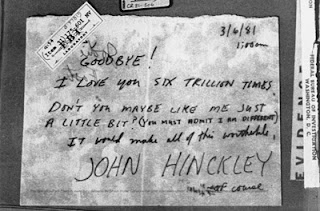 3/6/81
1:00am
GOODBYE!
I LOVE YOU SIX TRILLION TIMES.
DON'T YOU MAYBE LIKE ME JUST
A LITTLE BIT? (YOU MUST ADMIT I AM DIFFERENT)
IT would make all of this worthwhile.
JOHN HINCKLEY
of course
FBI
EVIDENCE
FEDERAL BUREAU OF INVESTIGATION
WASHINGTON, D. C.